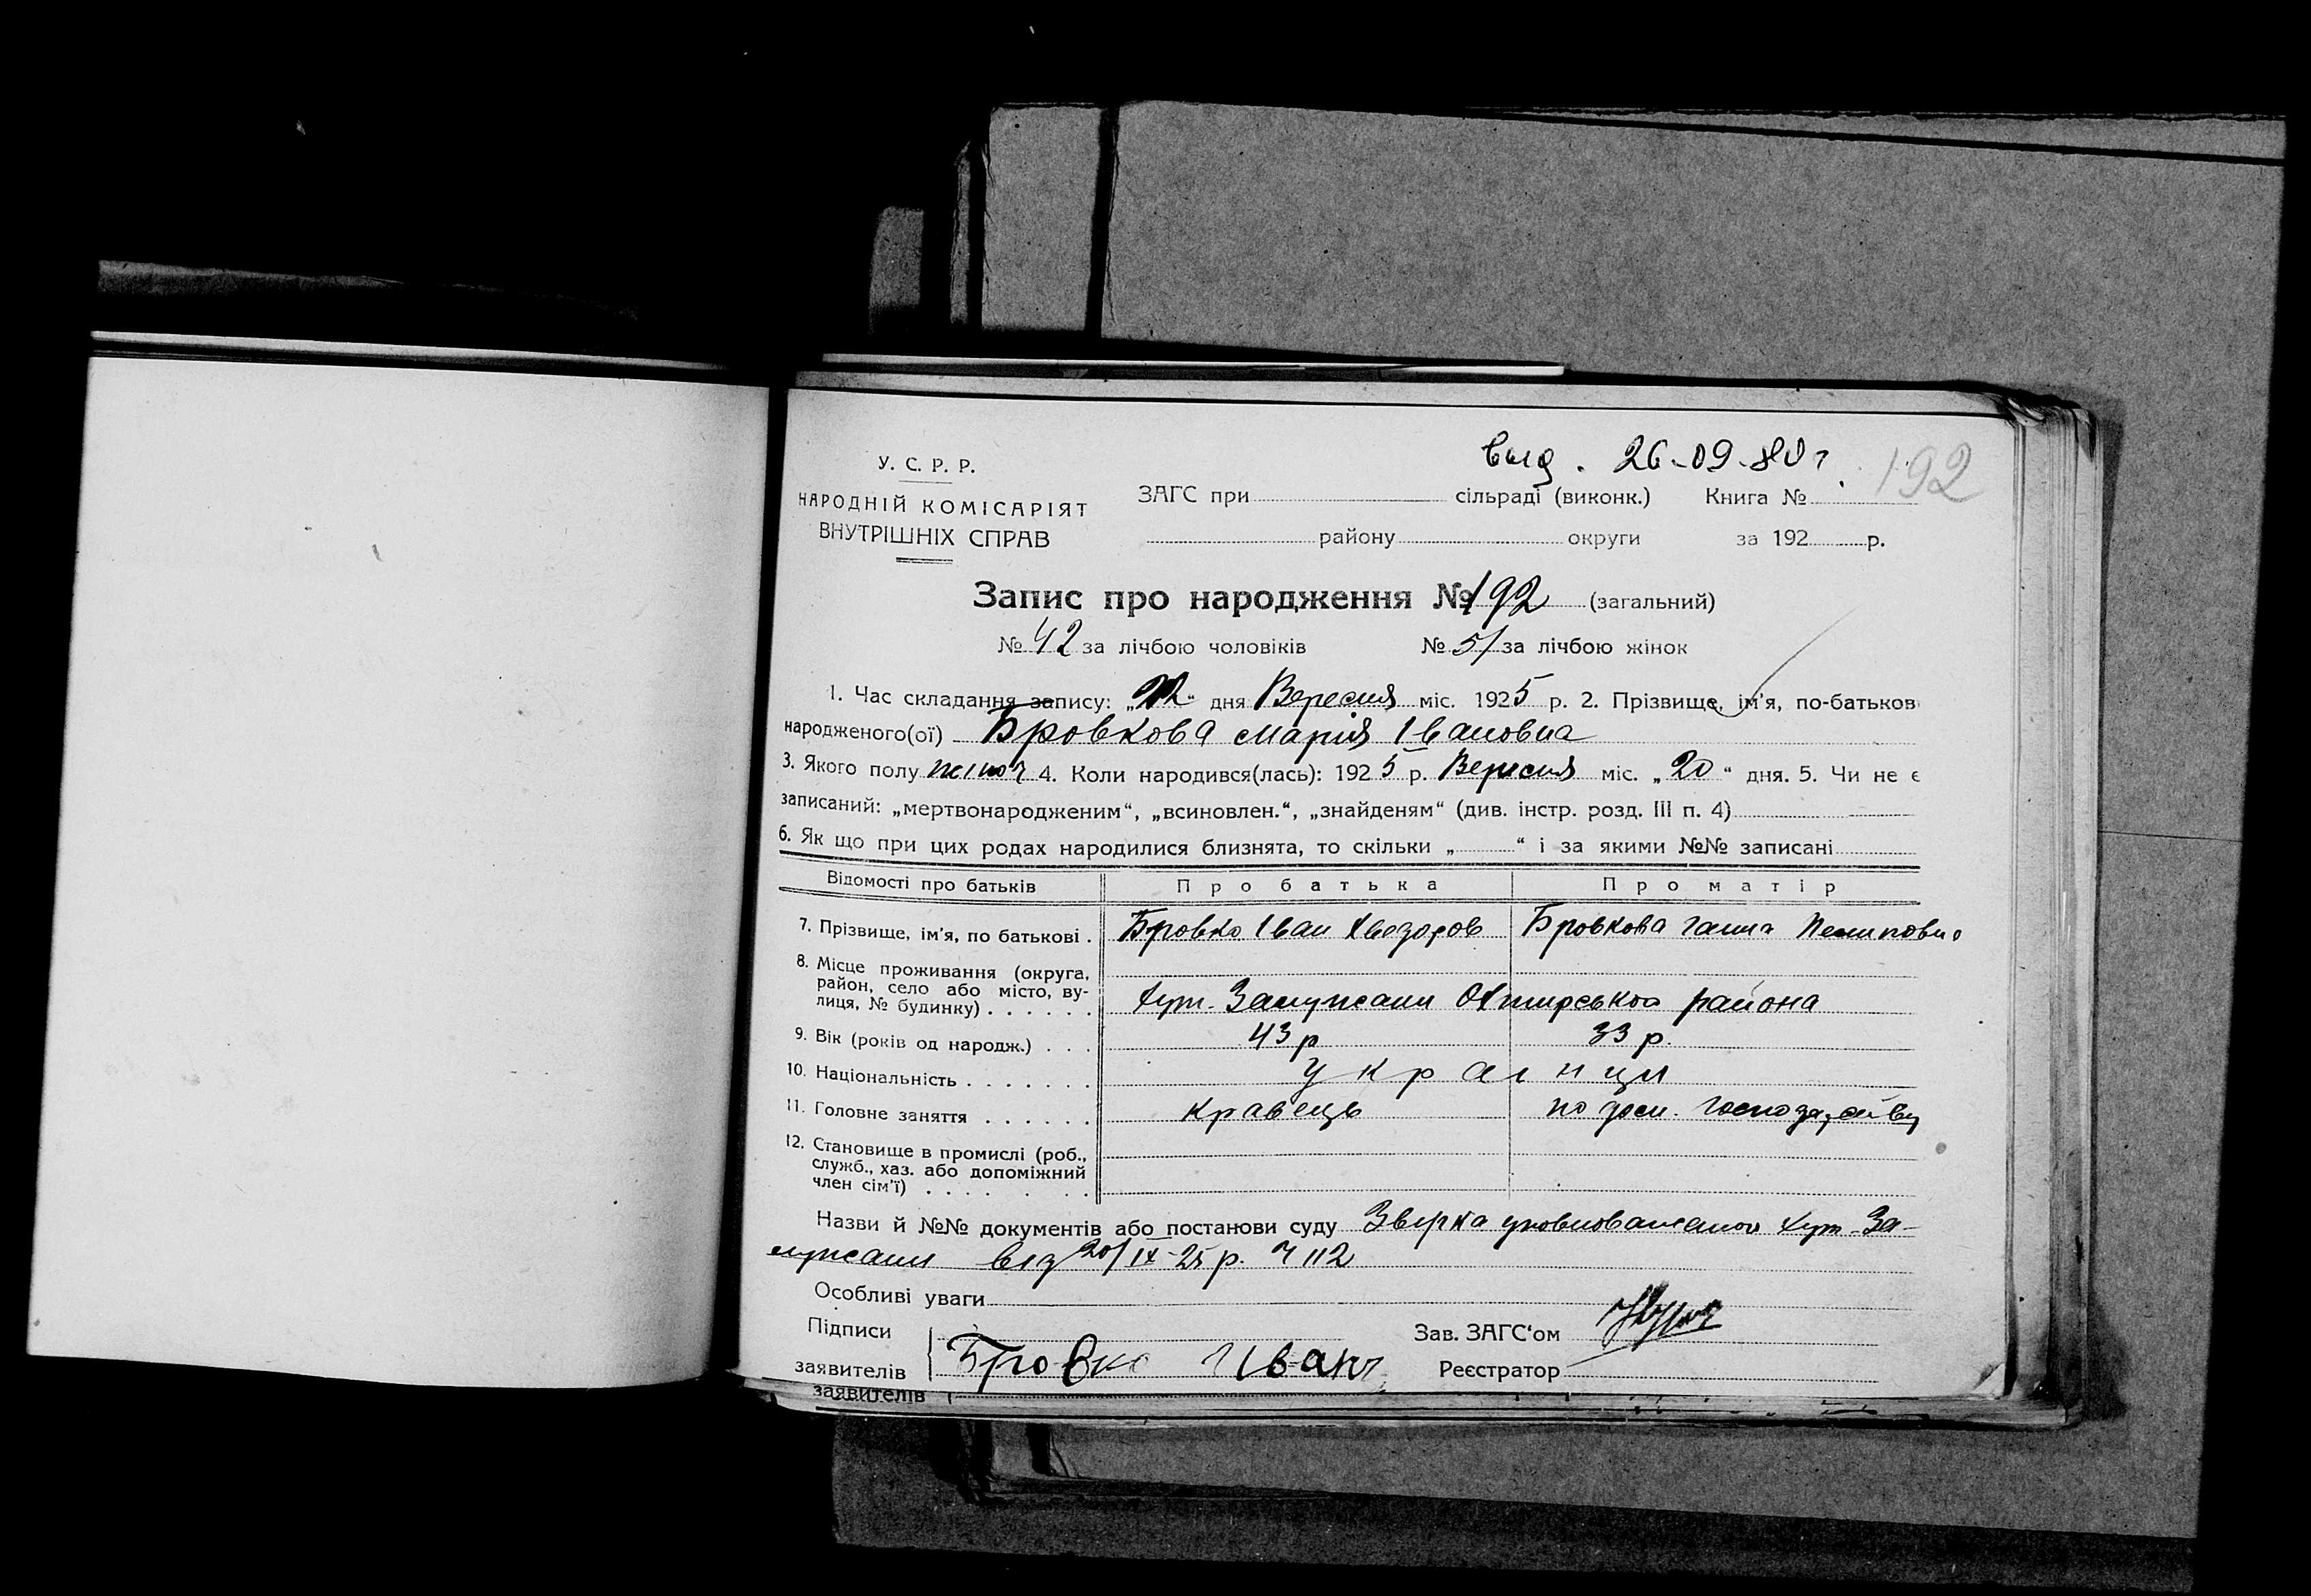 выд. 26-09-80 г.
192
У. С. Р. Р.
НАРОДНІЙ КОМІСАРІЯТ
ВНУТРІШНІХ СПРАВ
ЗАГС при сільраді (виконк.) Книга №
району округи за 192 р.
Запис про народження № 192 (загальний)
№ 42 за лічбою чоловіків № 51 за лічбою жінок
1. Час складання запису: „22“ дня Вересня міс. 1925 р. 2. Прізвище, ім'я, по-батьков
народженого(ої) Бровкова Марія Івановна
3. Якого полу жіноч 4. Коли народився(лась): 1925 р. Вересня міс. „20“ дня. 5. Чи не є
записаний: „мертвонародженим“, „всиновлен.“, „знайденям“ (див. інстр. розд. III п. 4)
6. Як що при цих родах народилися близнята, то скільки „ “ і за якими №№ записані
Відомості про батьків Про батька Про матір
7. Прізвище, ім'я, по батькові . Бровко Іван Хведоров Бровкова Ганна Пелиповна
8. Місце проживання (округа,
район, село або місто, ву-
лиця, № будинку) . . . . . . хут. Замужани Охтирського района
9. Вік (років од народж.) . . . 43 р 33 р.
10. Національність . . . . . . . Українци
11. Головне заняття . . . . . . кравець по дом. господарству
12. Становище в промислі (роб.,
служб., хаз. або допоміжний
член сім'ї) . . . . . . .
Назви й №№ документів або постанови суду уповноваженого хут. За-
мужани від 20/IX-25 р. Ч 112
Особливі уваги
Підписи Зав. ЗАГС'ом
заявителів Бровко Иван Реєстратор
заявителів